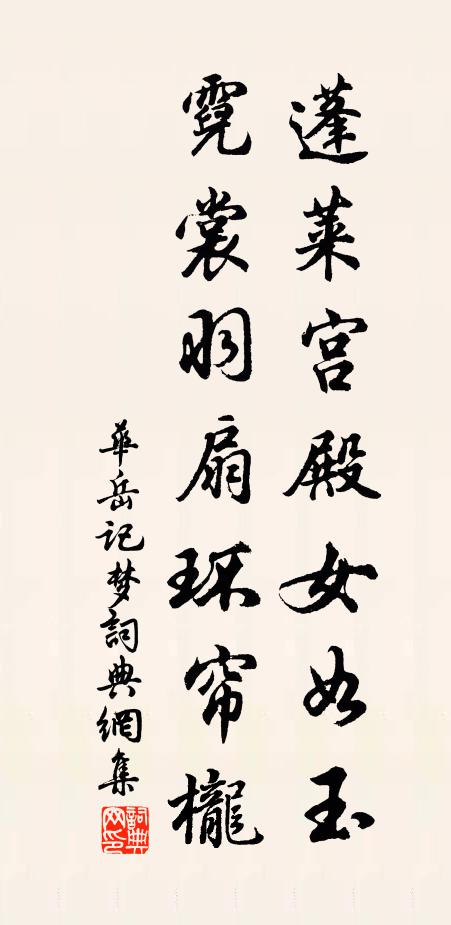 蓬莱宫殿女如玉
霓裳羽扇环帘櫳
華岳记梦詞典網集
詞典网印